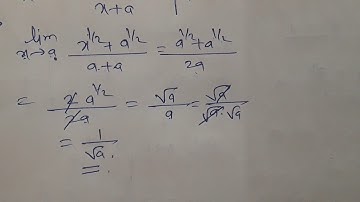 x+a
lim x→a (x^1/2 + a^1/2)/(a+a) = (a^1/2 + a^1/2)/2a
= (2 a^1/2)/(2a) = √a/a = √a/(√a·√a)
= 1/√a.